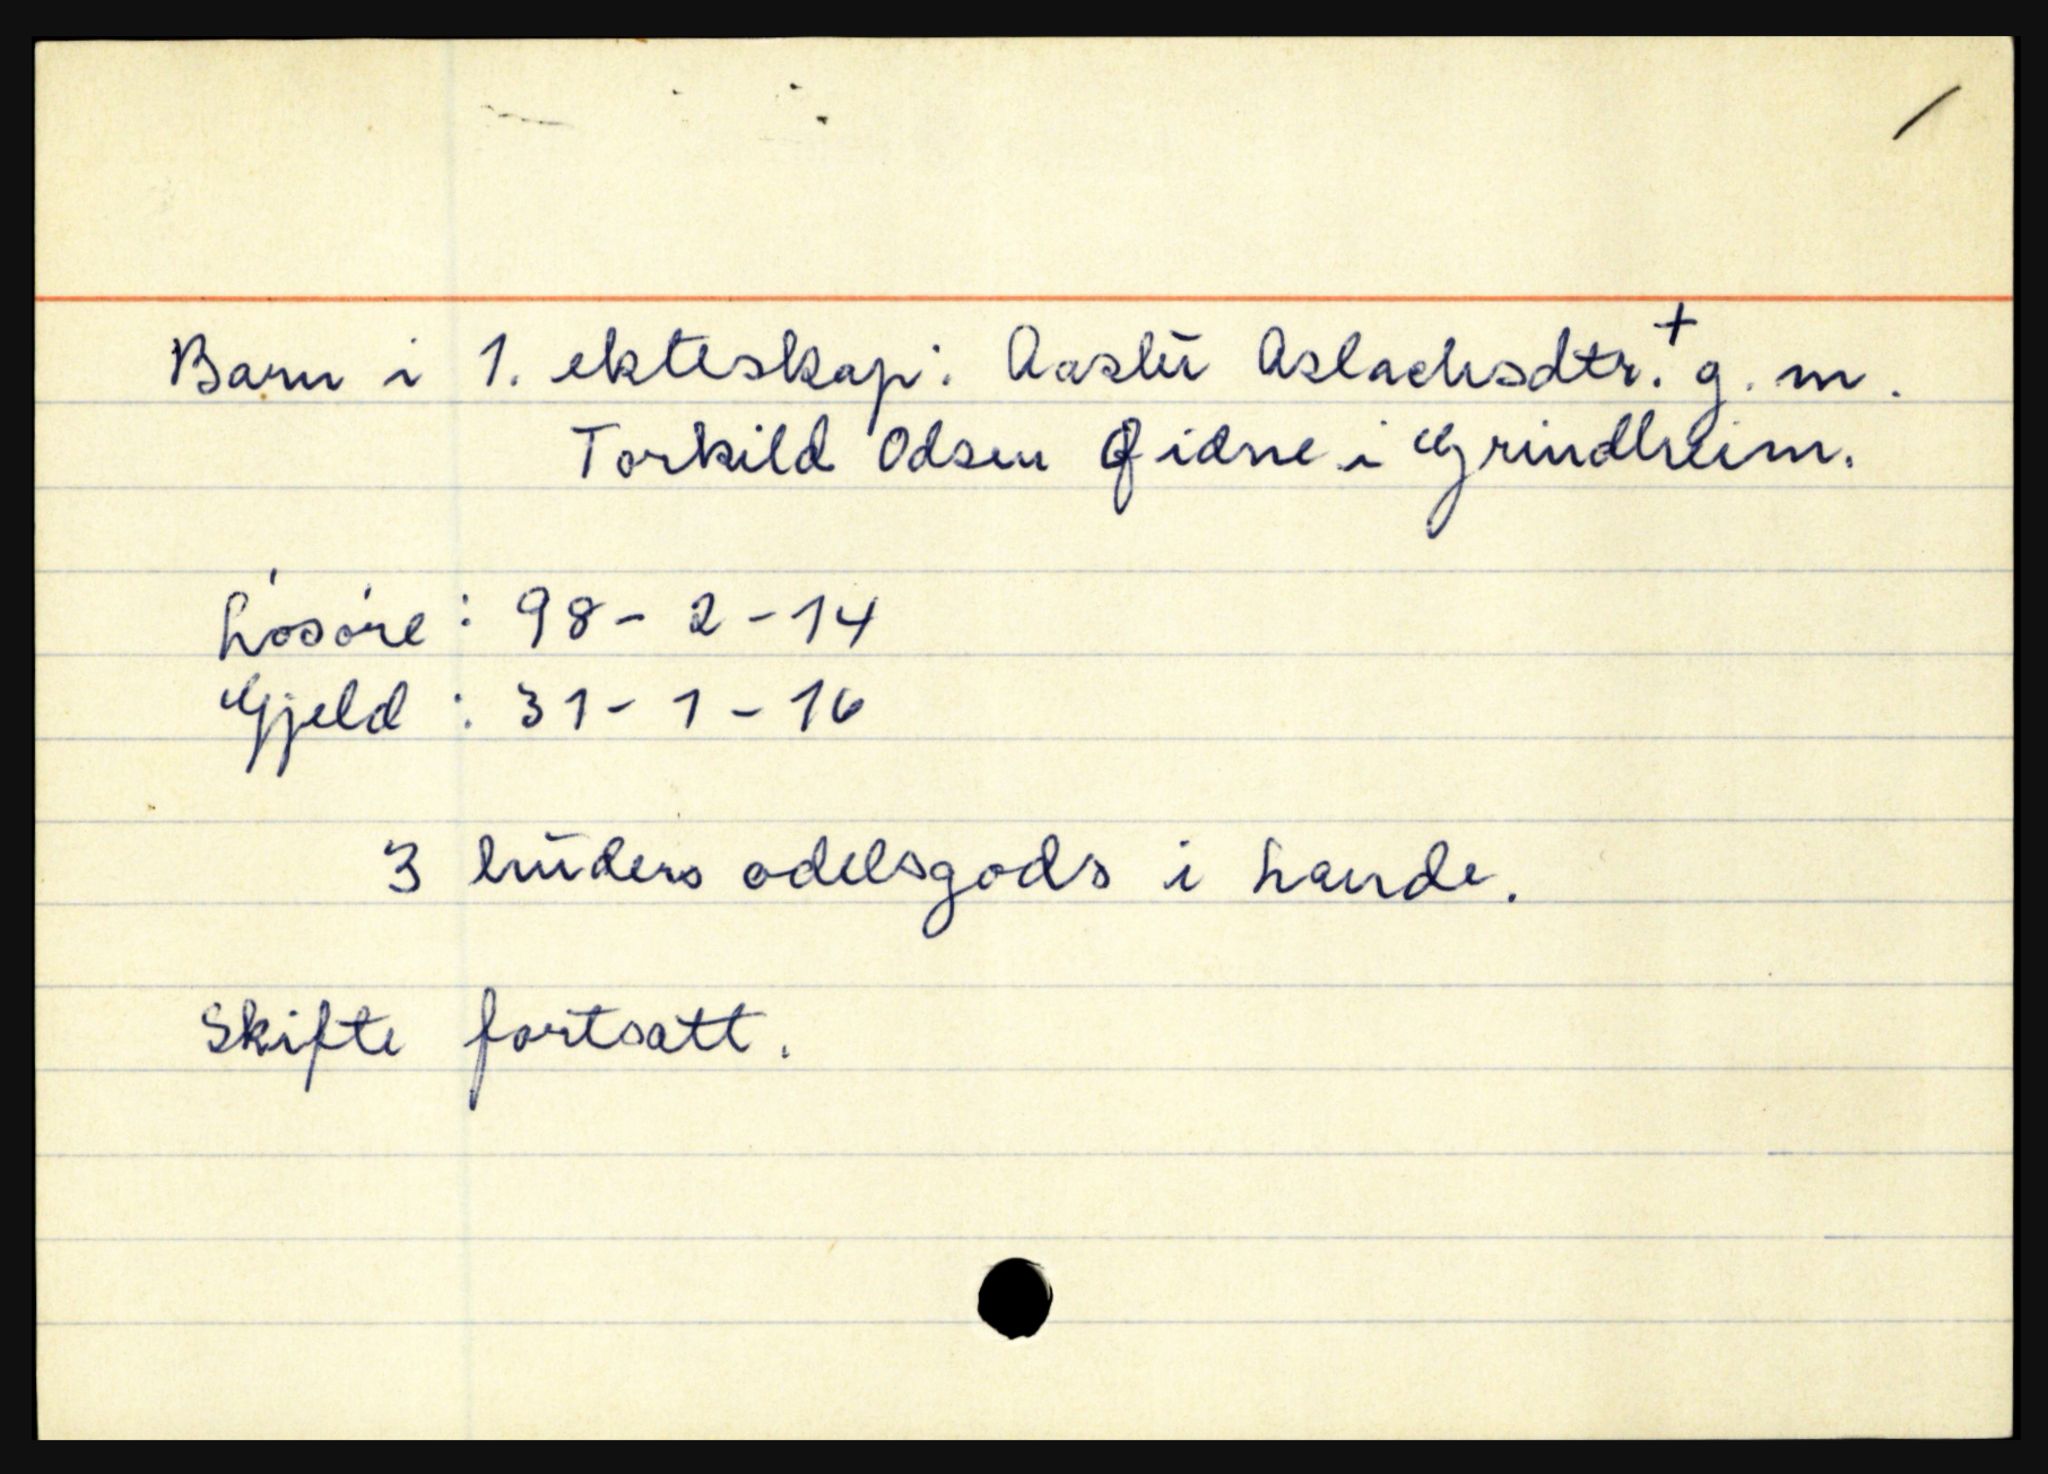 Barn i 1. ekteskap: Aaslŭ Aslachsdtr.+ g. m.
Torkild Odsen Qidne i Grindheim.
Lösöre: 98 - 2 - 14
Gjeld: 31 - 1 - 16
3 hŭders odelsgods i Lande.
Skifte fortsatt.